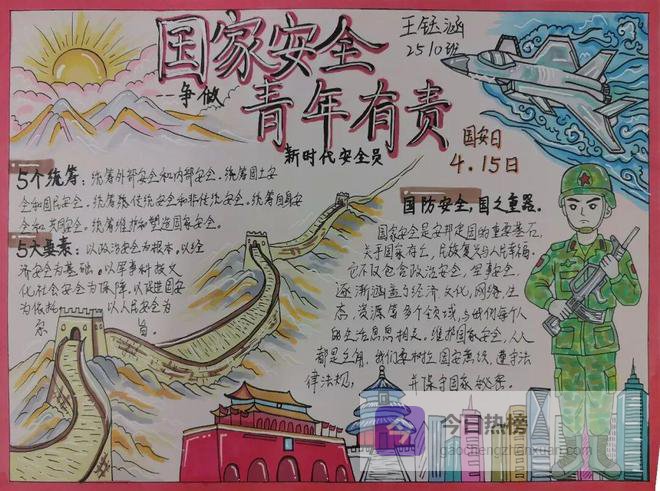 国家安全
青年有责
——争做
新时代安全员
王钰涵
2510班
国安日
4.15日
5个统筹：统筹外部安全和内部安全、统筹国土安
全和国民安全、统筹传统安全和非传统安全、统筹自身安
全和共同安全、统筹维护和塑造国家安全。
5大要素：以政治安全为根本，以经
济安全为基础，以军事科技文
化社会安全为保障，以促进国安
为依托，以人民安全为
宗旨。
国防安全，国之重器。
国家安全是安邦定国的重要基石，
关于国家存亡，民族复兴与人民幸福，
它不仅包含政治安全，军事安全，
逐渐涵盖了经济，文化，网络，生
态，资源等多个领域，与我们每个人
的生活息息相关。维护国家安全，人人
都是主角，我们要树立国安意识，遵守法
律法规，并保守国家秘密。
今
今日热榜
gaochengzhenxuan.com